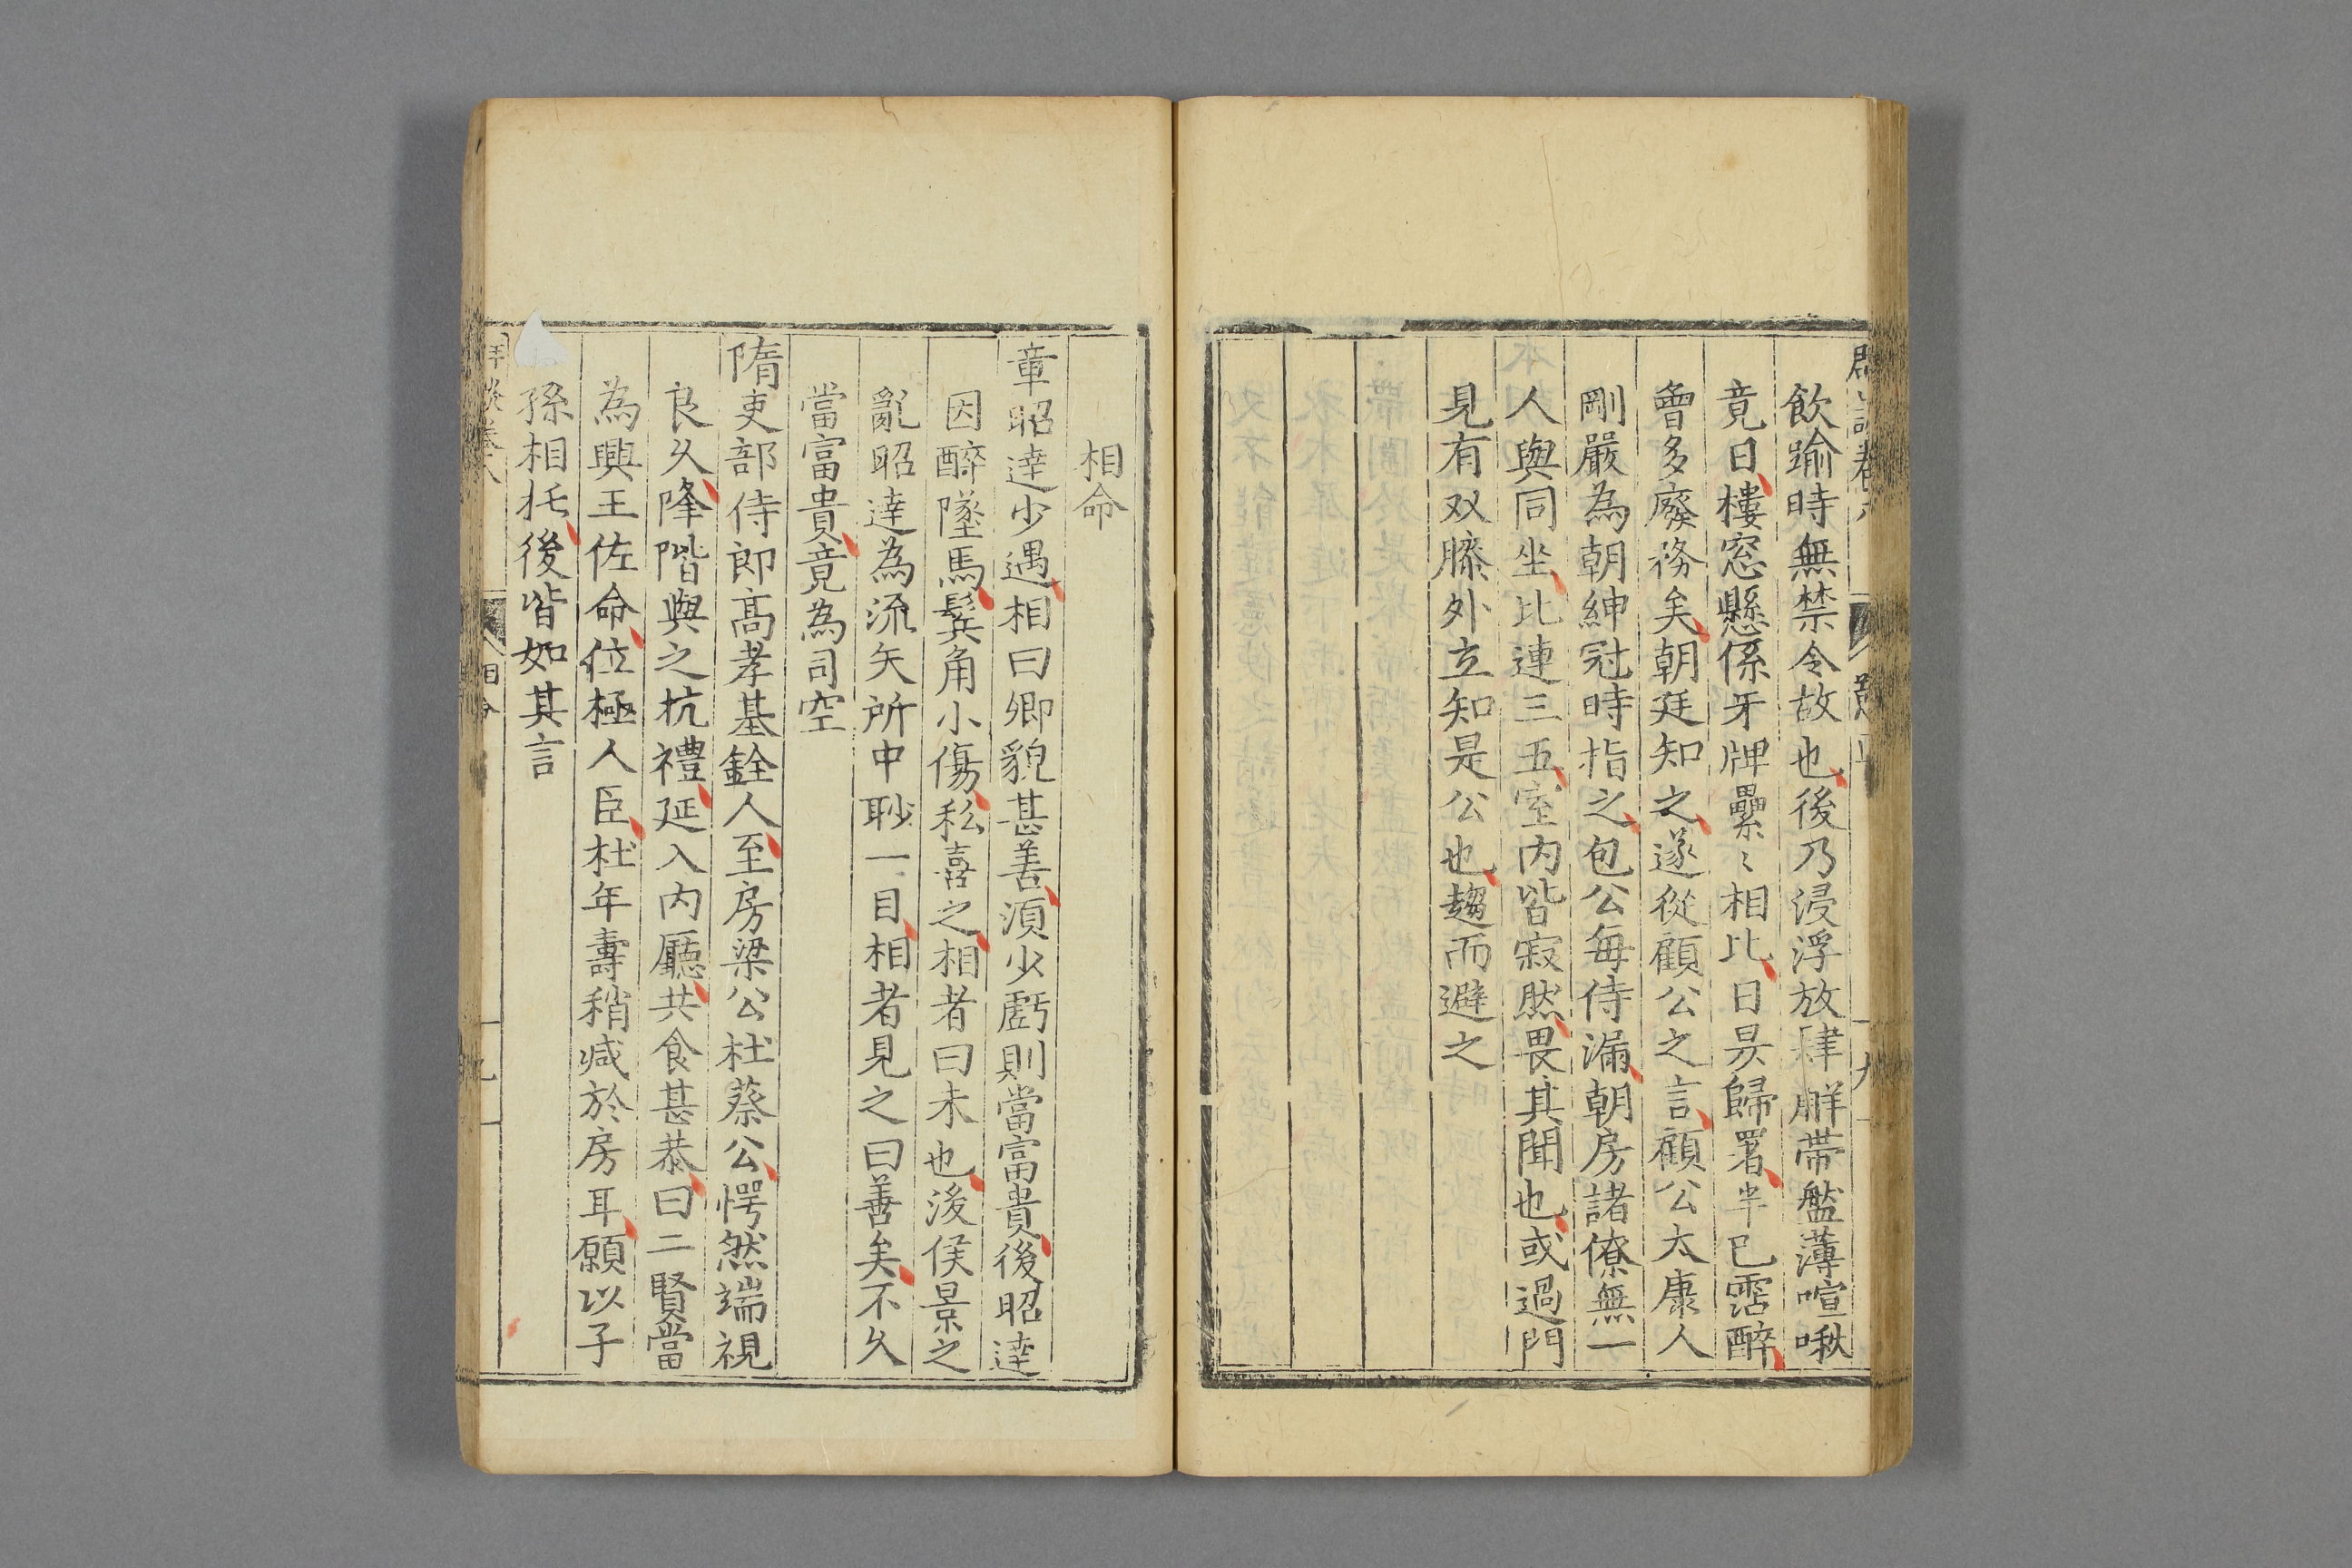 飲踰時無禁令故也後乃浸浮放肆胖帶盤薄喧啾
竟日樓窓懸係牙牌纍〻相比日昃歸署半已霑醉
曾多廢務矣朝廷知之遂從顧公之言顧公太康人
剛嚴為朝紳冠時指之包公每侍漏朝房諸僚無一
人與同坐比連三五室內皆寂然畏其聞也或過門
見有双藤外立知是公也趨而避之
相命
章昭達少遇相曰卿貌甚善須少虧則當富貴後昭達
因醉墜馬鬓角小傷私喜之相者曰未也後侯景之
亂昭達為流矢所中眇一目相者見之曰善矣不久
當富貴竟為司空
隋吏部侍郎高孝基銓人至房梁公杜蔡公愕然端視
良久降階與之抗禮延入內廳共食甚恭曰二賢當
為興王佐命位極人臣杜年壽稍减於房耳願以子
孫相托後皆如其言